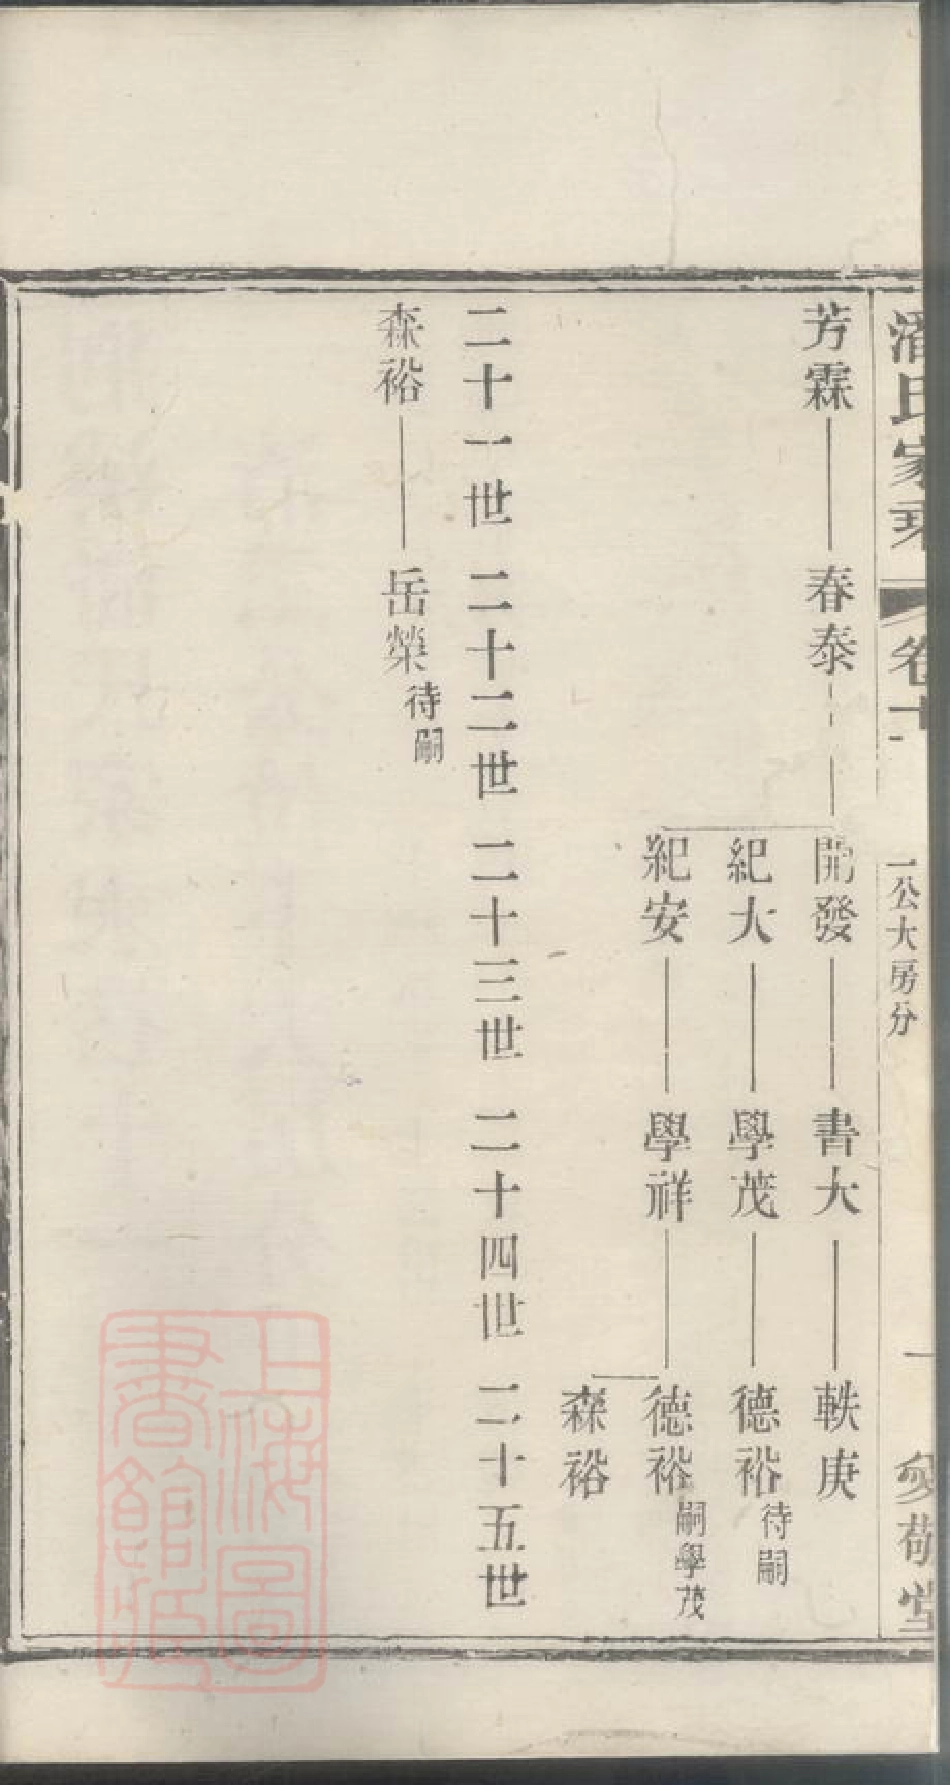 潘氏家乘
卷十
一公大房分
一
敘敬堂
芳霖 春泰 開發 書大 軼庚
紀大 學茂 德裕 待嗣
紀安 學祥 德裕 嗣學茂
森裕
二十一世 二十二世 二十三世 二十四世 二十五世
森裕 岳榮 待嗣
上海圖
書館藏